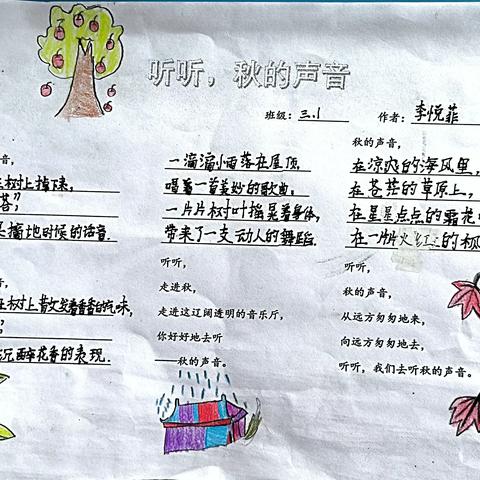 听听，秋的声音
班级：三.1 作者：李悦菲
音，
树上掉下来，
嗒”
地时候的话音．
音，
在树上散发着香香的气味，
”
醉花香的表现．
一滴滴小雨落在屋顶，
唱着一首美妙的歌曲，
一片片树叶摇晃着身体，
带来了一支动人的舞蹈．
听听，
走进秋，
走进这辽阔透明的音乐厅，
你好好地去听
——秋的声音。
秋的声音，
在凉爽的海风里，
在苍茫的草原上，
在星星点点的菊花
在一片片火红的枫
听听，
秋的声音，
从远方匆匆地来，
向远方匆匆地去，
听听，我们去听秋的声音。